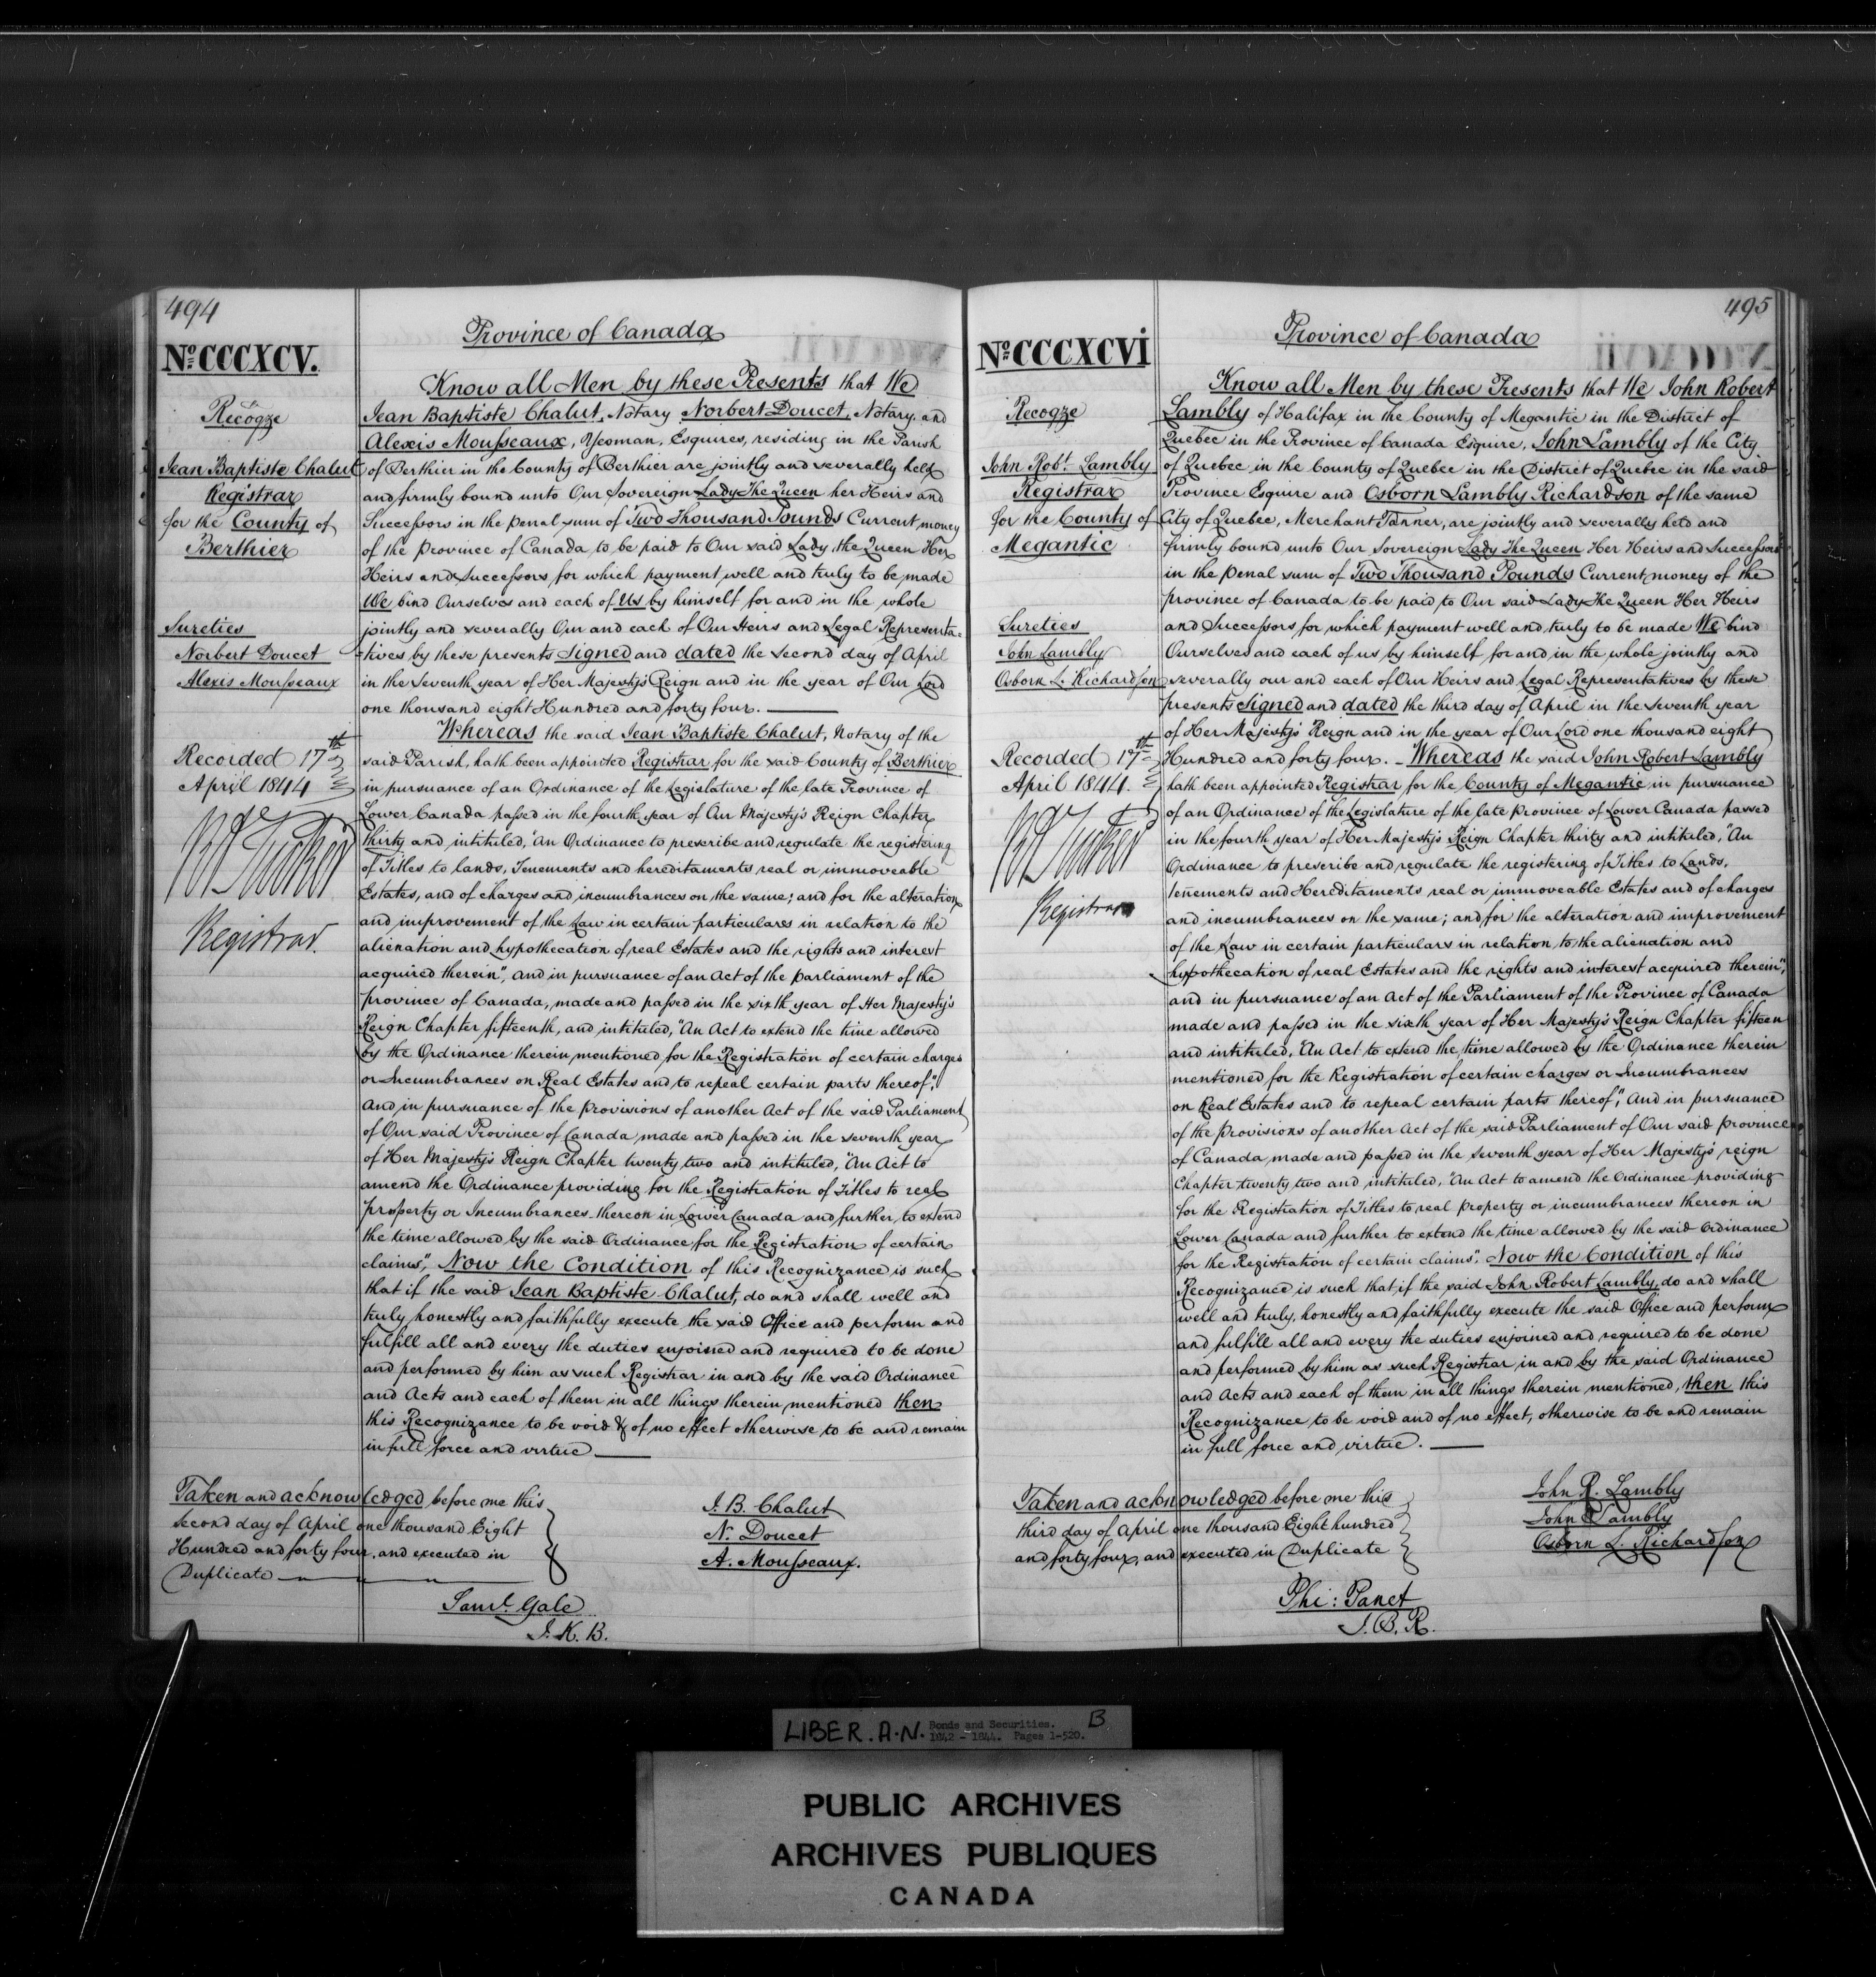 494
Nº CCCXCV.
Recogze
Jean Baptiste Chalut
Registrar
for the County of
Berthier
Sureties
Norbert Doucet
Alexis Mousseaux
Recorded 17th
April 1844
Registrar.
Province of Canada
Know all Men by these Presents that We
Jean Baptiste Chalut, Notary Norbert Doucet, Notary, and
Alexis Mousseaux, Yeoman, Esquires, residing in the Parish
of Berthier in the County of Berthier are jointly and severally held
and firmly bound unto Our Sovereign Lady The Queen her Heirs and
Successors in the penal sum of Two Thousand Pounds Current money
of the Province of Canada to be paid to Our said Lady, the Queen Her
Heirs and Successors for which payment well and truly to be made
We bind Ourselves and each of Us by himself for and in the whole
jointly and severally Our and each of Our Heirs and Legal Representa=
=tives by these presents Signed and dated the second day of April
in the Seventh year of Her Majesty's Reign and in the year of Our Lord
one thousand eight Hundred and forty four.
Whereas the said Jean Baptiste Chalut, Notary of the
said Parish, hath been appointed Registrar for the said County of Berthier
in pursuance of an Ordinance of the Legislature of the late Province of
Lower Canada passed in the fourth year of Our Majesty's Reign Chapter
Thirty and intituled, "An Ordinance to prescribe and regulate the registering
of Titles to lands, Tenements and hereditaments real or immoveable
Estates, and of charges and incumbrances on the same; and for the alteration
and improvement of the Law in certain particulars in relation to the
alienation and hypothecation of real Estates and the rights and interest
acquired therein", And in pursuance of an Act of the Parliament of the
Province of Canada, made and passed in the sixth year of Her Majesty's
Reign Chapter fifteenth, and intituled, "An Act to extend the time allowed
by the Ordinance therein mentioned for the Registration of certain charges
or Incumbrances on Real Estates and to repeal certain parts thereof",
And in pursuance of the provisions of another Act of the said Parliament
of Our said Province of Canada made and passed in the seventh year
of Her Majesty's Reign Chapter twenty two and intituled, "An Act to
amend the Ordinance providing for the Registration of Titles to real
Property or Incumbrances thereon in Lower Canada and further, to extend
the time allowed by the said Ordinance for the Registration of certain
claims", Now the Condition of this Recognizance is such
that if the said Jean Baptiste Chalut, do and shall well and
truly honestly and faithfully execute the said Office and perform and
fulfill all and every the duties enjoined and required to be done
and performed by him as such Registrar in and by the said Ordinance
and Acts and each of them in all things therein mentioned then
this Recognizance to be void & of no effect otherwise to be and remain
in full force and virtue
Taken and acknowledged before me this
second day of April one thousand Eight
Hundred and forty four, and executed in
Duplicate
J. B. Chalut
N. Doucet
A. Mousseaux.
Saml. Gale
J. K. B.
495
Nº CCCXCVI
Recogze
John Robt. Lambly
Registrar
for the County of
Megantic
Sureties
John Lambly
Osborn L. Richardson
Recorded 17th
April 1844.
Registrar
Province of Canada
Know all Men by these Presents that We John Robert
Lambly of Halifax in the County of Megantic in the District of
Quebec in the Province of Canada Esquire, John Lambly of the City
of Quebec in the County of Quebec in the District of Quebec in the said
Province Esquire and Osborn Lambly Richardson of the same
City of Quebec, Merchant Tanner, are jointly and severally held and
firmly bound unto Our Sovereign Lady The Queen Her Heirs and Successors
in the penal sum of Two Thousand Pounds Current money of the
province of Canada to be paid to Our said Lady the Queen Her Heirs
and Successors for which payment well and truly to be made We bind
Ourselves and each of us by himself for and in the whole jointly and
severally our and each of Our Heirs and Legal Representatives by these
presents Signed and dated the third day of April in the Seventh year
of Her Majesty's Reign and in the year of Our Lord one thousand eight
Hundred and forty four. Whereas the said John Robert Lambly
hath been appointed Registrar for the County of Megantic in pursuance
of an Ordinance of the Legislature of the late province of Lower Canada passed
in the fourth year of Her Majesty's Reign Chapter thirty and intituled, "An
Ordinance to prescribe and regulate the registering of Titles to Lands,
Tenements and Hereditaments real or immoveable Estates and of charges
and incumbrances on the same; and for the alteration and improvement
of the Law in certain particulars in relation to the alienation and
hypothecation of real Estates and the rights and interest acquired therein",
and in pursuance of an Act of the Parliament of the Province of Canada
made and passed in the sixth year of Her Majesty's Reign Chapter fifteen
and intituled, "An Act to extend the time allowed by the Ordinance therein
mentioned for the Registration of certain charges or Incumbrances
on Real Estates and to repeal certain parts thereof", And in pursuance
of the provisions of another Act of the said Parliament of Our said province
of Canada made and passed in the Seventh year of Her Majesty's reign
Chapter twenty two and intituled, "An Act to amend the Ordinance providing
for the Registration of Titles to real property or incumbrances thereon in
Lower Canada and further to extend the time allowed by the said Ordinance
for the Registration of certain claims". Now the Condition of this
Recognizance is such that if the said John Robert Lambly, do and shall
well and truly, honestly and faithfully execute the said Office and perform
and fulfill all and every the duties enjoined and required to be done
and performed by him as such Registrar in and by the said Ordinance
and Acts and each of them in all things therein mentioned, then this
Recognizance to be void and of no effect, otherwise to be and remain
in full force and virtue.
Taken and acknowledged before me this
third day of April one thousand Eight hundred
and forty four, and executed in Duplicate
John R. Lambly
John Lambly
Osborn L. Richardson
Phi: Panet
J. B. R.
LIBER. A.N. Bonds and Securities. B
1842 - 1844. Pages 1-520.
PUBLIC ARCHIVES
ARCHIVES PUBLIQUES
CANADA